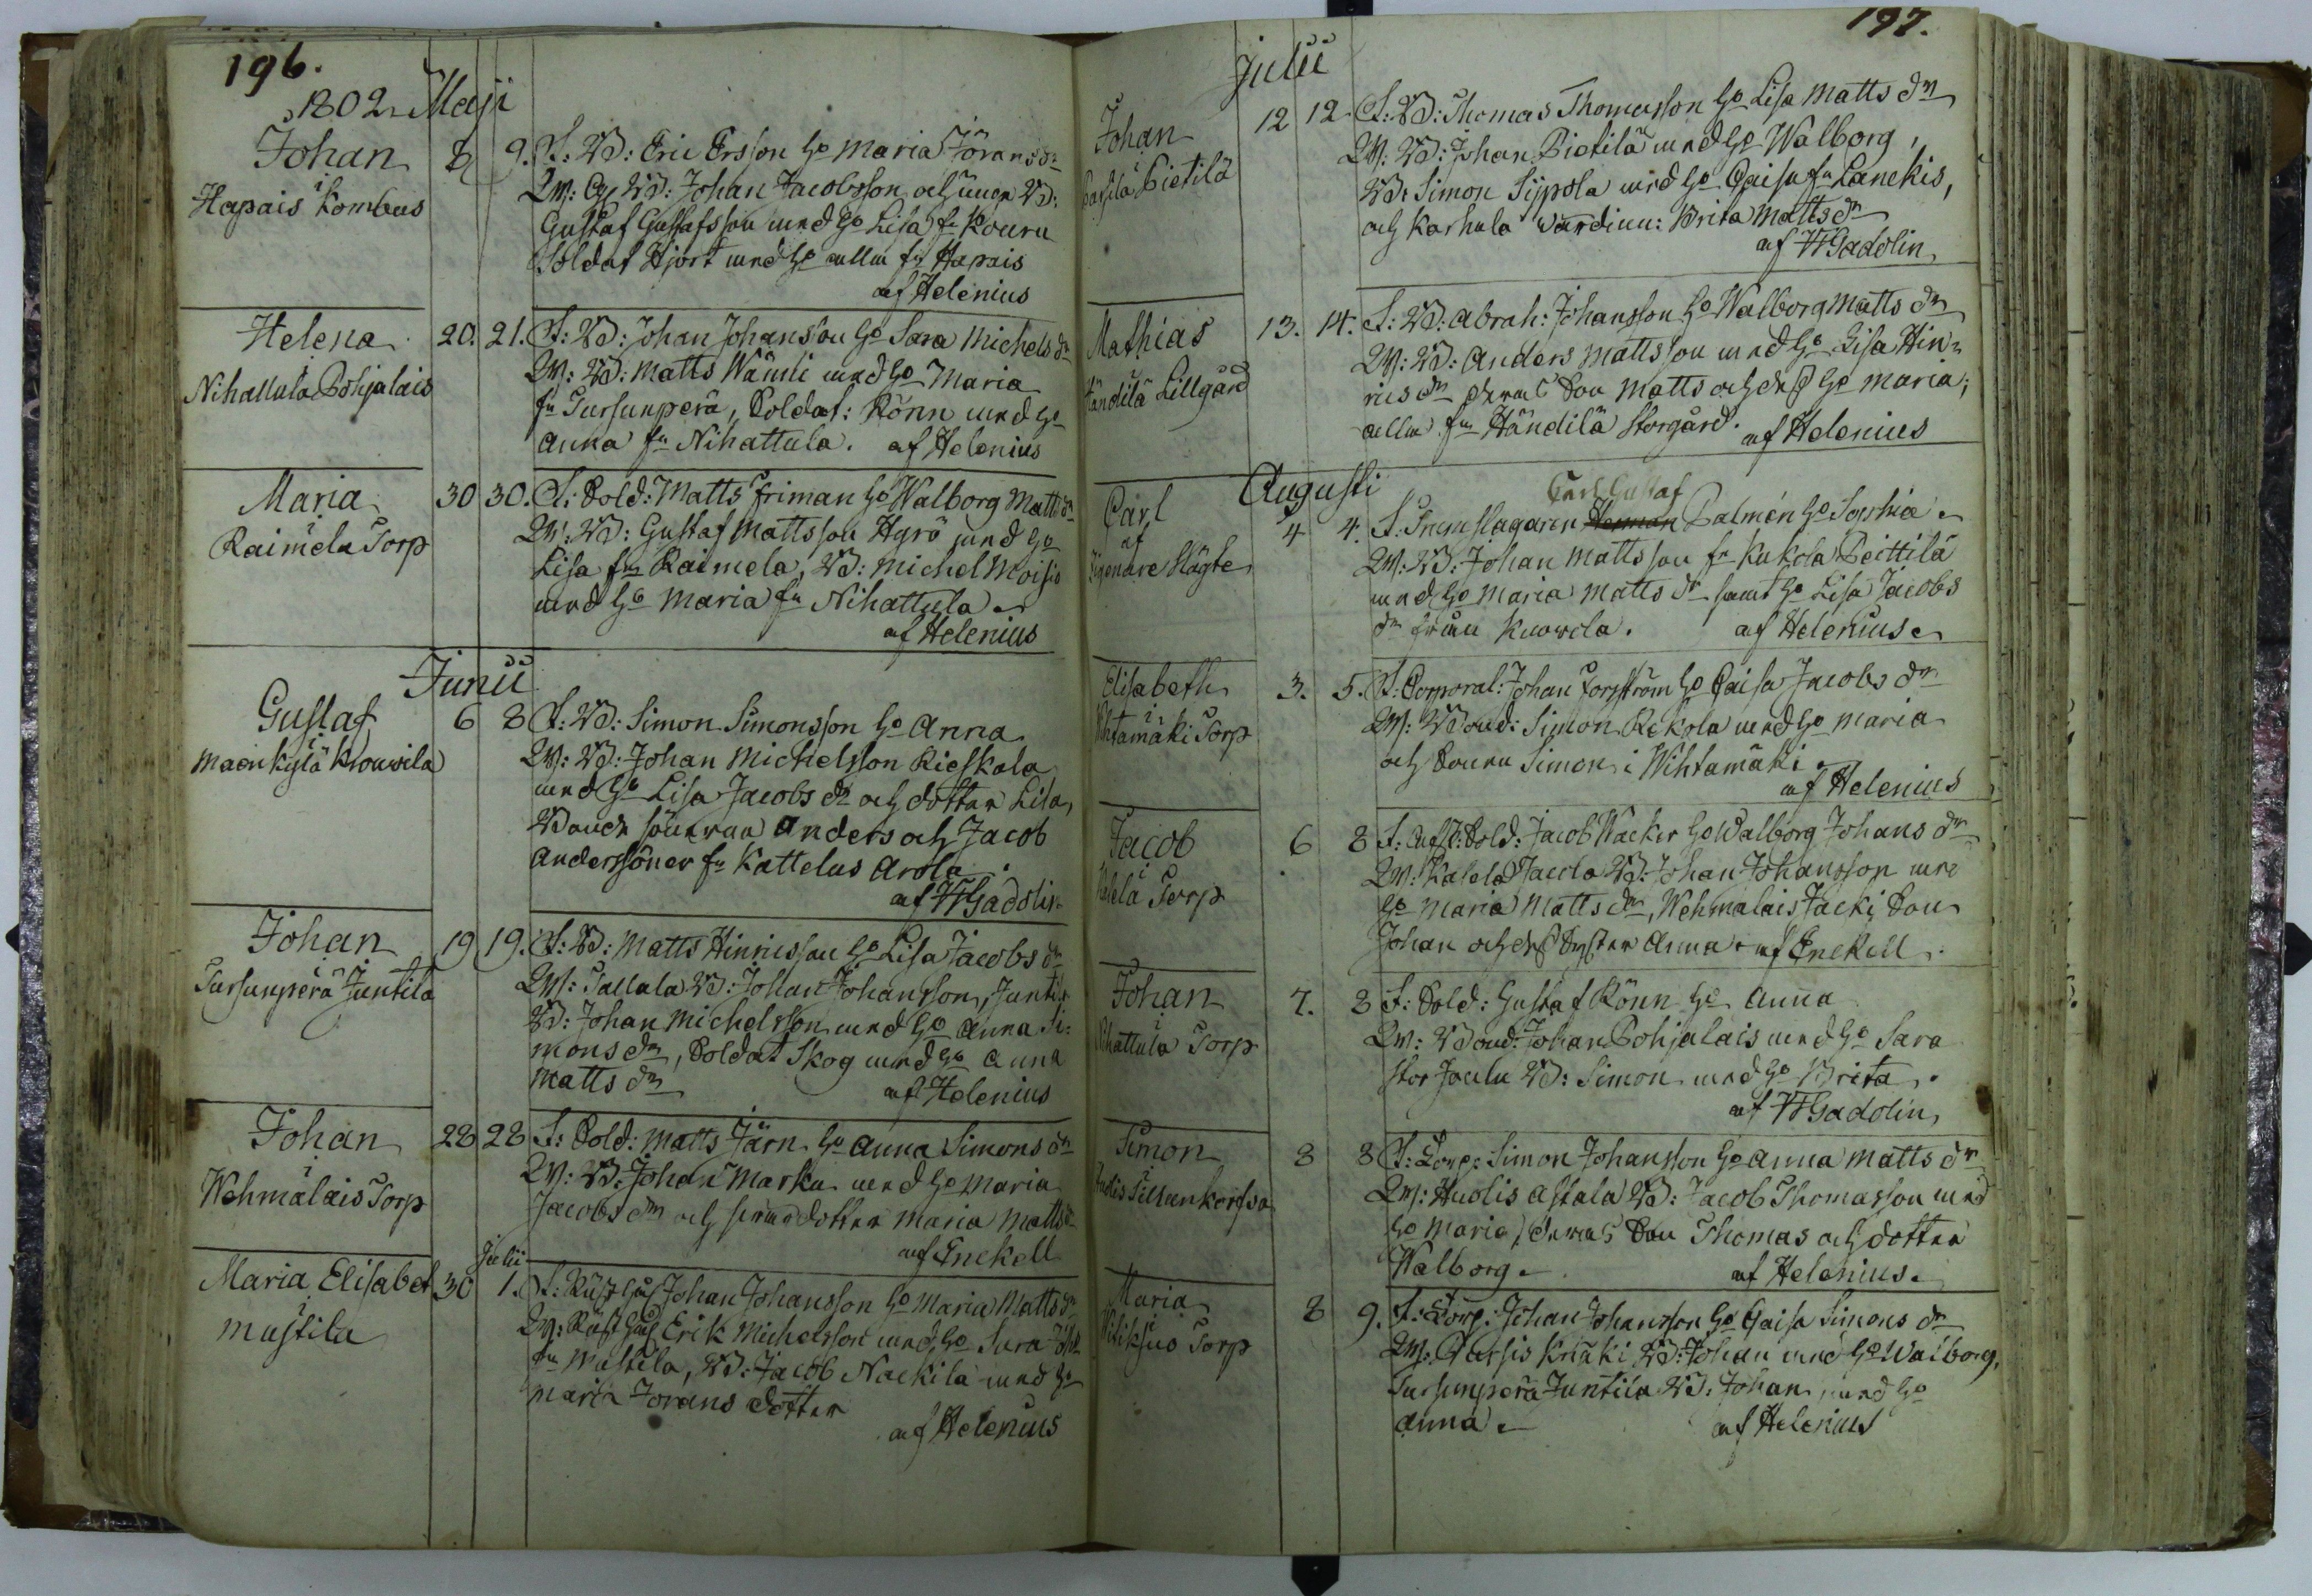 196.
1802 Maji
Johan
i
Hapais Kombus
8 9. F: B: Eric Ersson Ho Maria Jörans dr
W: B: Johan Jacobsson och B:
Gustaf Gustafsson med Ho Lisa fr
Soldat Hjort med Ho alla fr Hapais
af Helenius
Helena
i
Nihattula Pohjalais
20. 21. F: B: Johan Johansson Ho Sara Michels dr
W: B: Matts Wänni med Ho Maria
fr Tursunperä, Soldat: Rönn med Ho
Anna fr Nihattula. af Helenius
Maria
i
Raimela Torp
30 30. F: Sold: Matts Friman Ho Walborg Matts dr
W: B: Gustaf Mattsson Hyrö med Ho
Lisa frn Raimela, B: Michel Moisio
med Ho Maria fr Nihattula
af Helenius
Junii
Gustaf
i
Maenkylä Krouwila
6 8 F: B: Simon Simonsson Ho Anna
W: B: Johan Michelsson Rieskala
med Ho Lisa Jacobs dr och dotter Lisa,
Bonde sönerna Anders och Jacob
Anderssöner fr Kattelus Arola
af Gadolin
Johan
i
Tursunperä Juntila
19 19. F: B: Matts Hinricsson Ho Lisa Jacobs dr
W: Tallala B: Johan Johansson, Juntila
B: Johan Michelsson med Ho Anna Si:
mons dr, Soldat Skog med Ho Anna
Matts dr af Helenius
Johan
i
Wehmalais Torp
28 28 F: Sold: Matts Järn Ho Anna Simons dr
W: B: Johan Marku med Ho Maria
Jacobs dr och dotter Maria Matts dr
af Enekell
Julii
Maria Elisabet
Mustila
30 1. F: Rusth Johan Johansson Ho Maria Matts dr
W: Rusth Erik Michelsson med Ho Sara
fr Mustila, B: Jacob Nackila med Ho
Maria Jörans dotter
af Helenius
197.
Julii
Johan
i
Pietilä
12 12. F: B: Thomas Thomasson Ho Lisa Matts dr
W: B: Johan Pietilä med Ho Walborg,
B: Simon Sippola med Ho Caisa fr Lanekis,
och Karhula Wärdinn: Brita Matts dr
af Gadolin
Mathias
i
Händilä Lillgård
13. 14. F: B: Abrah: Johansson Ho Walborg Matts dr
W: B: Anders Mattsson med Ho Lisa Hin:
rics dr deras Son Matts och dess Ho Maria,
alla frn Händilä Storgård. af Helenius
Augusti
Carl
af
Zigenare Slägte
Carl Gustaf
4 4. F: Palmén Ho Sophia
W: B: Johan Mattsson fr Kukola Peittilä
med Ho Maria Matts dr samt Ho Lisa Jacobs
dr från Knowola. af Helenius
Elisabeth
i
Wihtamäki Torp
3. 5. F: Corporal: Johan Forsström Ho Caisa Jacobs dr
W: Bond: Simon Rekola med Ho Maria
och Sonen Simon i Wihtamäki
af Helenius
Jacob
i
Torp
6 8 F: Sold: Jacob Wacker Ho Walborg Johans dr
W: Kalela Jacola B: Johan Johansson med
Ho Maria Matts dr, Wehmalais Jacki Son
Johan och dess Syster Anna af Enekell
Johan
i
Nihattula Torp
7. 8 F: Sold: Gustaf Rönn Ho Anna
W: Bond: Johan Pohjalais med Ho Sara
Stor Joulu B: Simon med Ho Brita
af Gadolin
Simon
i
Huolis
8 8 F: Torp: Simon Johansson Ho Anna Matts dr
W: Huolis Astala B: Jacob Thomasson med
Ho Maria, deras Son Thomas och dotter
Walborg. af Helenius
Maria
i
Torp
8 9. F: Torp: Johan Johansson Ho Caisa Simons dr
W: Parsis Knäki B: Johan med Ho Walborg,
Tursunperä Juntila B: Johan med Ho
Anna. af Helenius